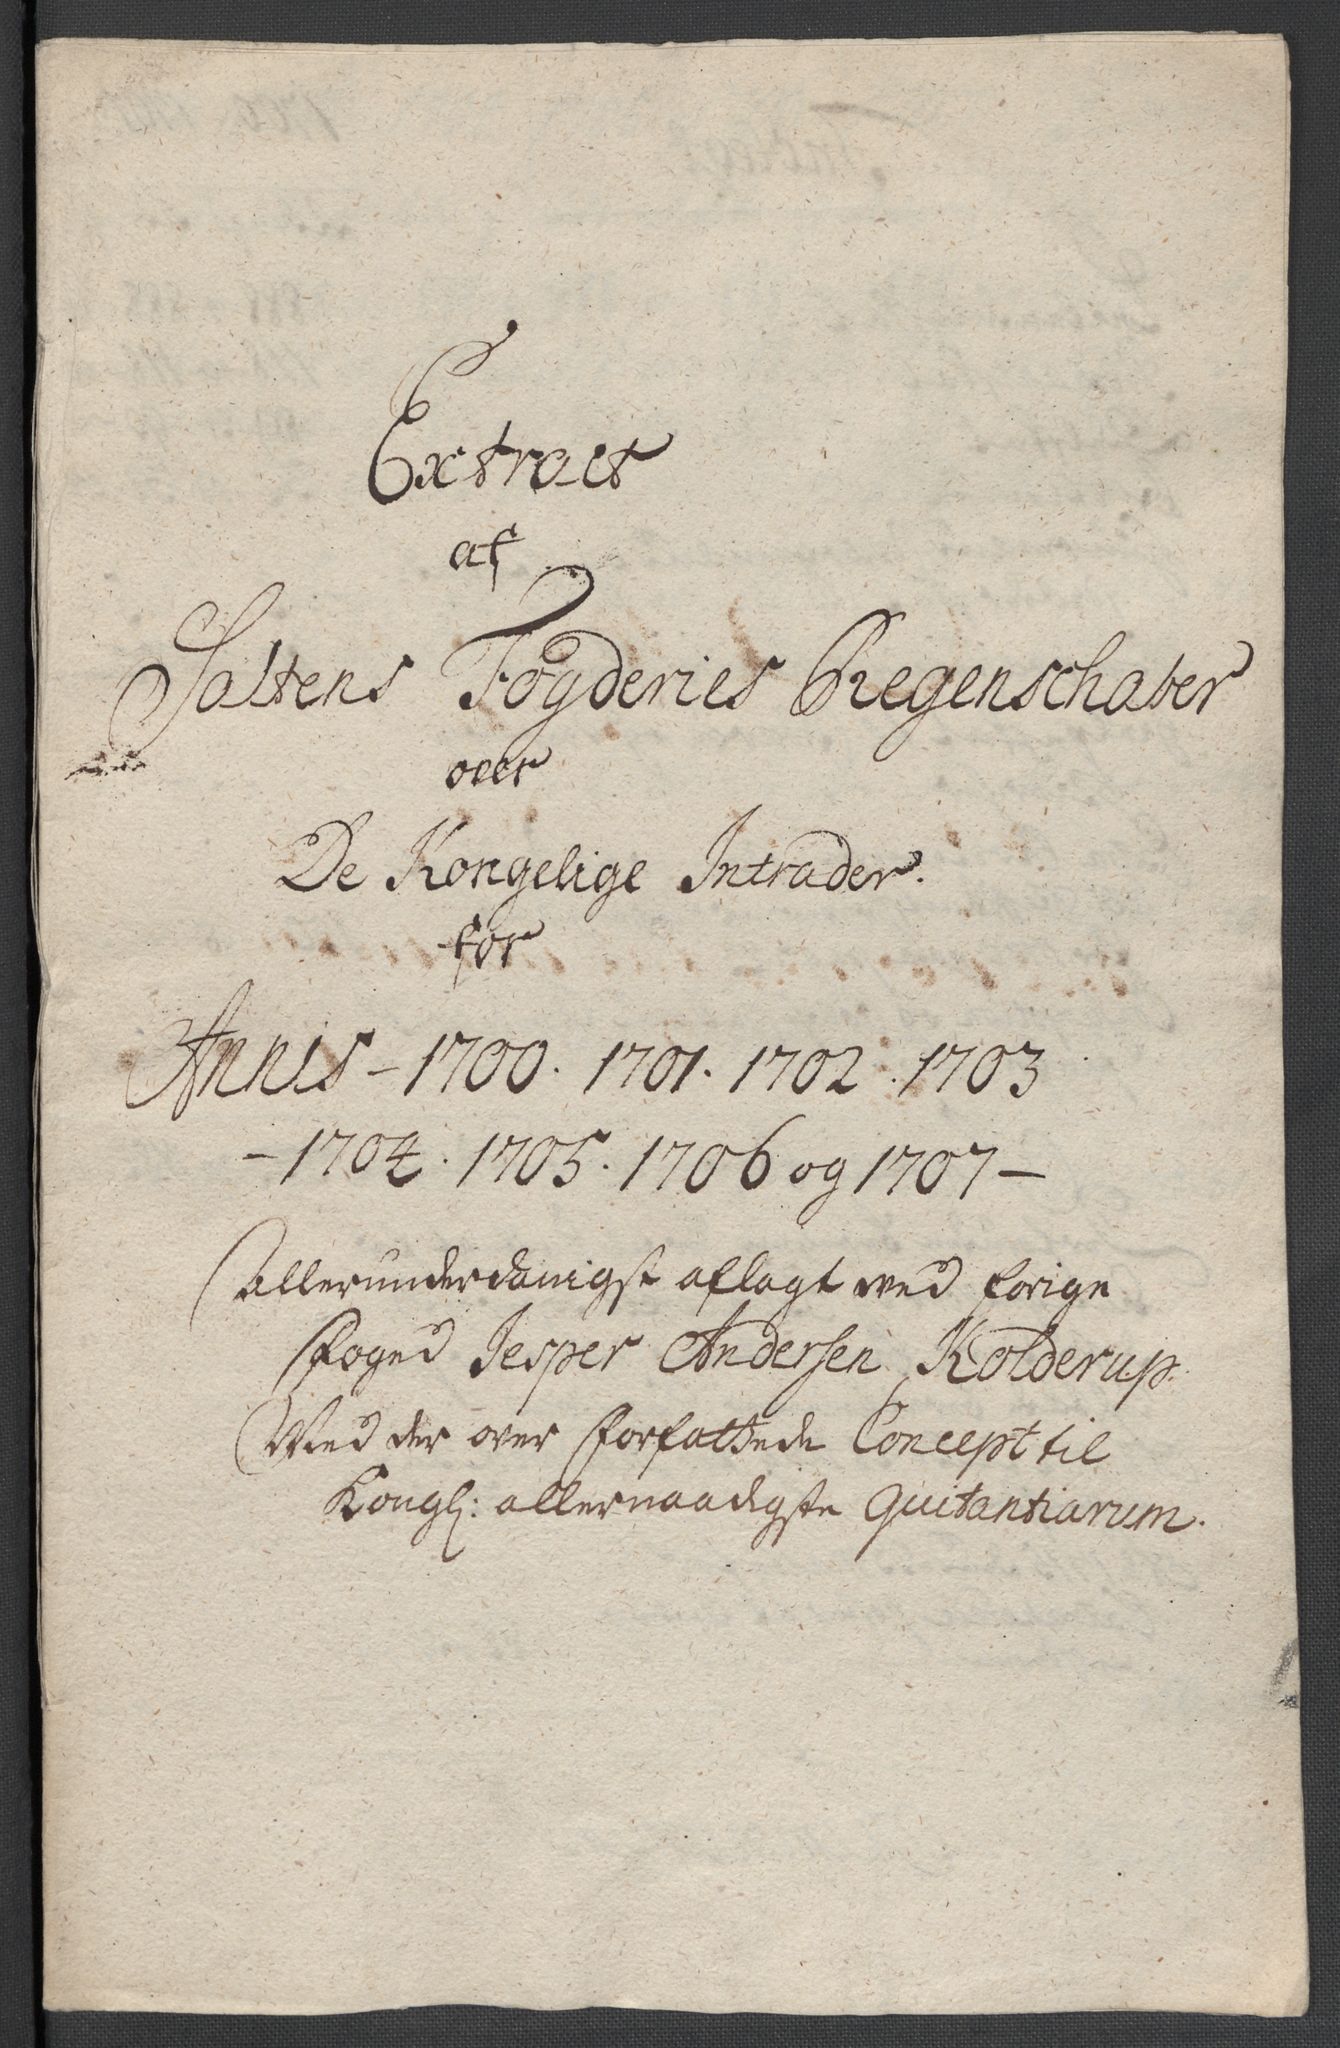 Extract
af
Saltens Fogderies Regenschaber
over
De Kongelige Intrader.
for
Annis - 1700. 1701. 1702. 1703
- 1704. 1705. 1706 og 1707 -
Allerunderdanigst aflagt ved forige
Foged Jesper Andersen Kolderup.
Med der over forfattede Concept til
Kongl: allernaadigste Quitantiarum.